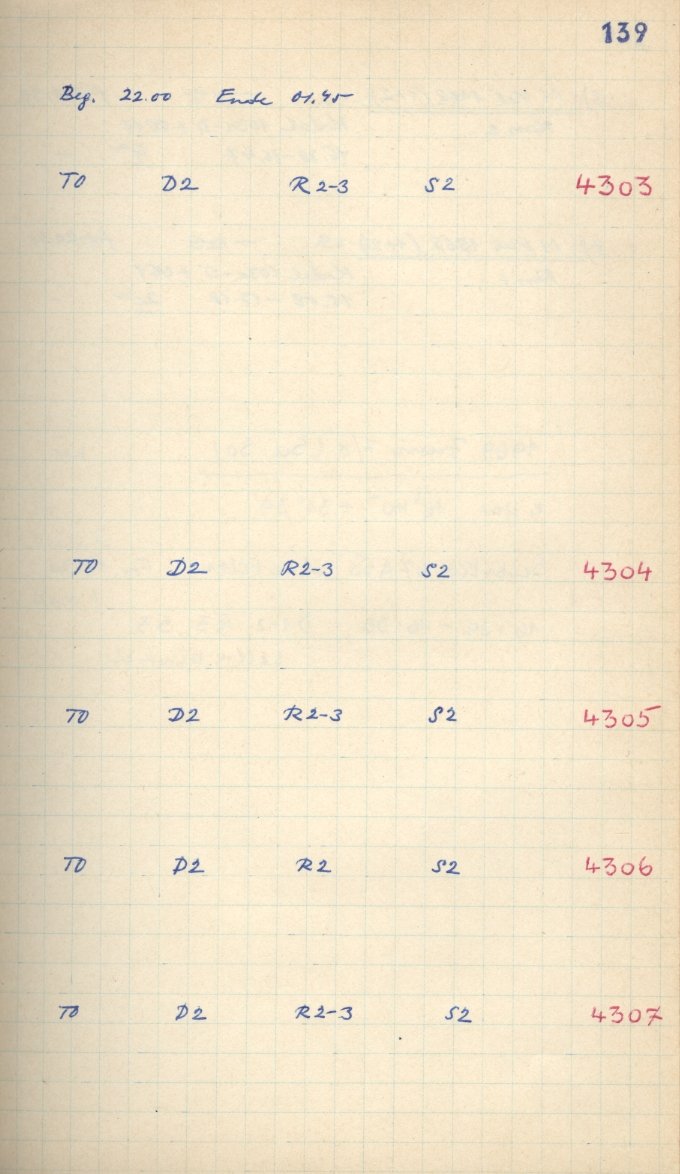 139
Beg. 22.00 Ende 01.45
T0 D2 R2-3 S2 4303
T0 D2 R2-3 S2 4304
T0 D2 R2-3 S2 4305
T0 D2 R2 S2 4306
T0 D2 R2-3 S2 4307